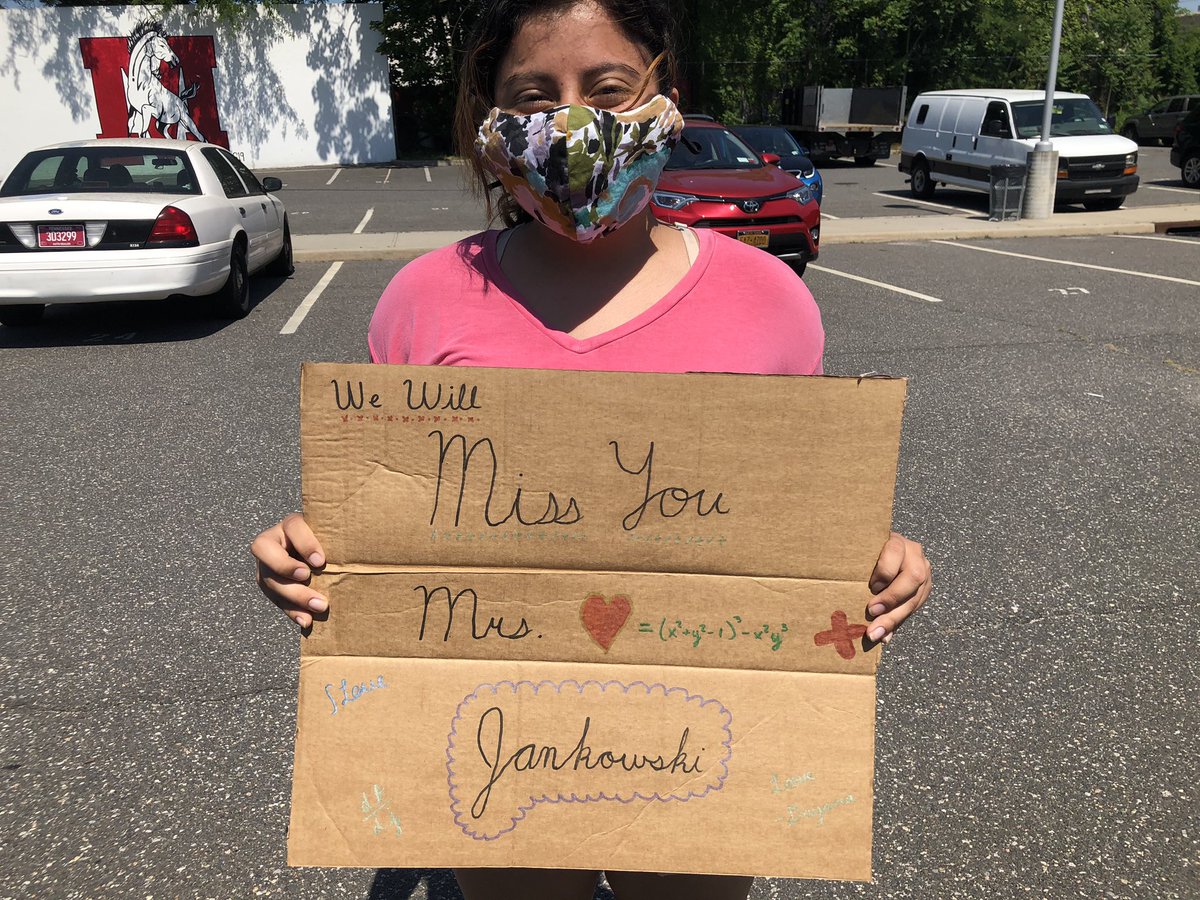 We Will
Miss You
Mrs. ❤ = (x²+y²-1)³-x²y³
∫ Love
Jankowski
Love
3U3299